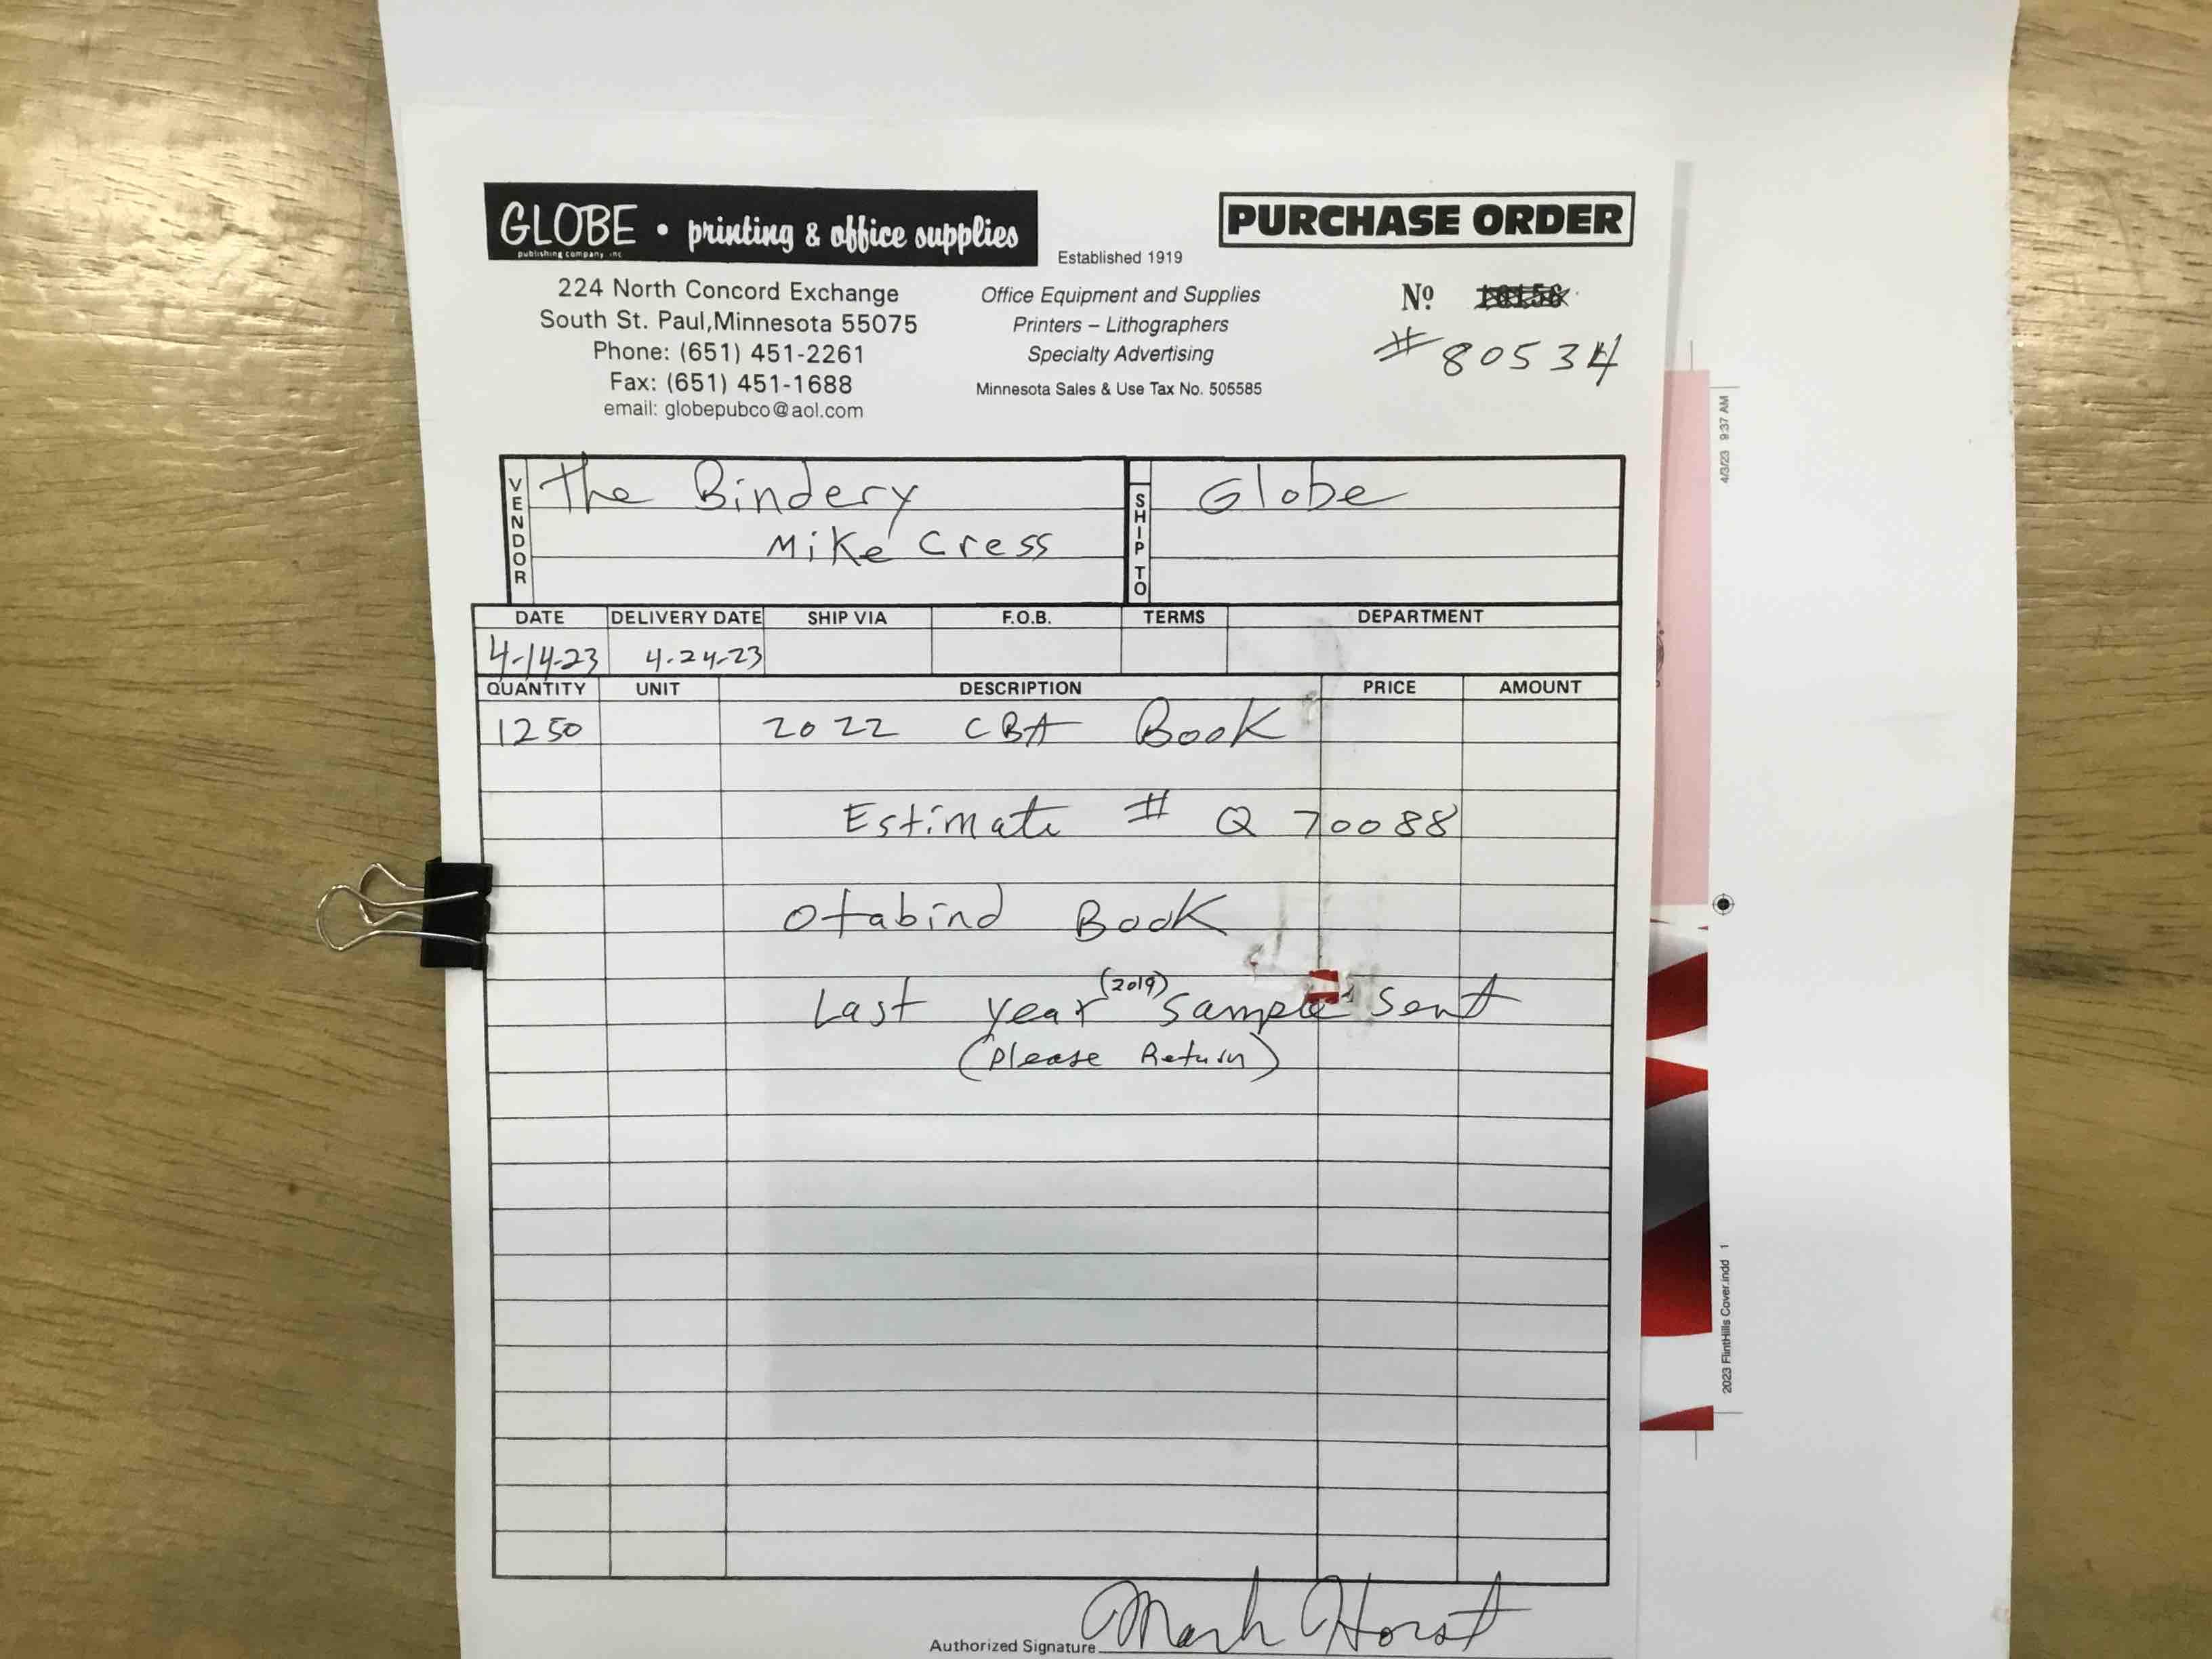 GLOBE • printing & office supplies
publishing company inc
Established 1919
PURCHASE ORDER
224 North Concord Exchange
South St. Paul, Minnesota 55075
Phone: (651) 451-2261
Fax: (651) 451-1688
email: globepubco@aol.com
Office Equipment and Supplies
Printers – Lithographers
Specialty Advertising
Minnesota Sales & Use Tax No. 505585
Nº
# 80534
VENDOR
The Bindery
Mike Cress
SHIP TO
Globe
DATE DELIVERY DATE SHIP VIA F.O.B. TERMS DEPARTMENT
4-14-23 4-24-23
QUANTITY UNIT DESCRIPTION PRICE AMOUNT
1250 2022 CBA Book
Estimate # Q 70088
Otabind Book
Last year (2019) sample sent
(please Return)
Authorized Signature Mark Horst
4/3/23 9:37 AM
2023 FlintHills Cover.indd 1